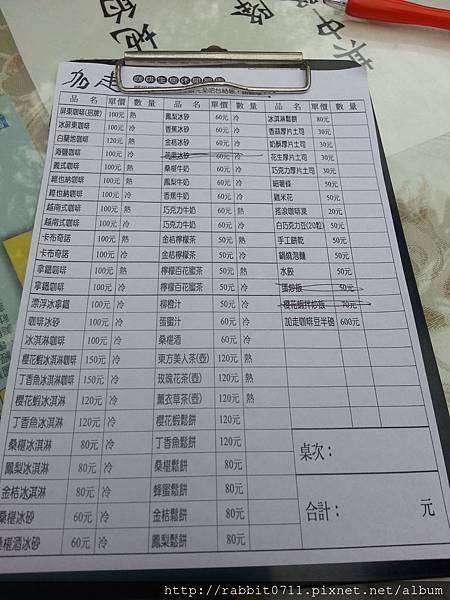 加走
咖啡生態休閒農場
品 名 單價 數 量 品 名 單價 數 量 品 名 單價 數 量
屏東咖啡(招牌) 100元 熱 鳳梨冰砂 60元 冷 冰淇淋鬆餅 80元
冰屏東咖啡 100元 冷 香蕉冰砂 60元 冷 香蒜厚片土司 30元
白蘭地咖啡 120元 熱 金桔冰砂 60元 冷 奶酥厚片土司 30元
海鹽咖啡 100元 冷 花果冰砂 60元 冷 花生厚片土司 30元
義式咖啡 100元 熱 桑椹牛奶 60元 冷 巧克力厚片土司 30元
維也納咖啡 100元 熱 鳳梨牛奶 60元 冷 細薯條 50元
維也納咖啡 100元 冷 香蕉牛奶 60元 冷 雞米花 50元
越南式咖啡 100元 熱 巧克力牛奶 60元 熱 搖滾咖啡凍 20元
越南式咖啡 100元 冷 巧克力牛奶 60元 冷 白巧克力豆(20粒) 50元
卡布奇諾 100元 熱 金桔檸檬茶 50元 熱 手工餅乾 50元
卡布奇諾 100元 冷 金桔檸檬茶 50元 冷 鍋燒泡麵 50元
拿鐵咖啡 100元 熱 檸檬百花蜜茶 50元 熱 水餃 50元
拿鐵咖啡 100元 冷 檸檬百花蜜茶 50元 冷 蛋炒飯 50元
漂浮冰拿鐵 100元 冷 柳橙汁 50元 冷 櫻花蝦拌炒飯 70元
咖啡冰砂 100元 冷 蛋蜜汁 50元 冷 加走咖啡豆半磅 600元
冰淇淋咖啡 100元 冷 桑椹酒 50元 冷
櫻花蝦冰淇淋咖啡 150元 冷 東方美人茶(壺) 120元 熱
丁香魚冰淇淋咖啡 150元 冷 玫瑰花茶(壺) 120元 熱
櫻花蝦冰淇淋 120元 冷 薰衣草茶(壺) 120元 熱
丁香魚冰淇淋 120元 冷 櫻花蝦鬆餅 120元
桑椹冰淇淋 80元 冷 丁香魚鬆餅 120元 桌次：
鳳梨冰淇淋 80元 冷 桑椹鬆餅 80元
金桔冰淇淋 80元 冷 蜂蜜鬆餅 80元 合計： 元
桑椹冰砂 60元 冷 金桔鬆餅 80元
桑椹酒冰砂 60元 冷 鳳梨鬆餅 80元
http://rabbit0711.pixnet.net/album